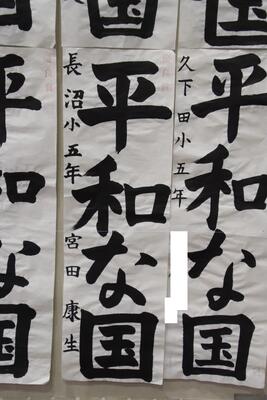 平和な国
久下田小五年
平和な国
長沼小五年 宮田康生
平和な国
国